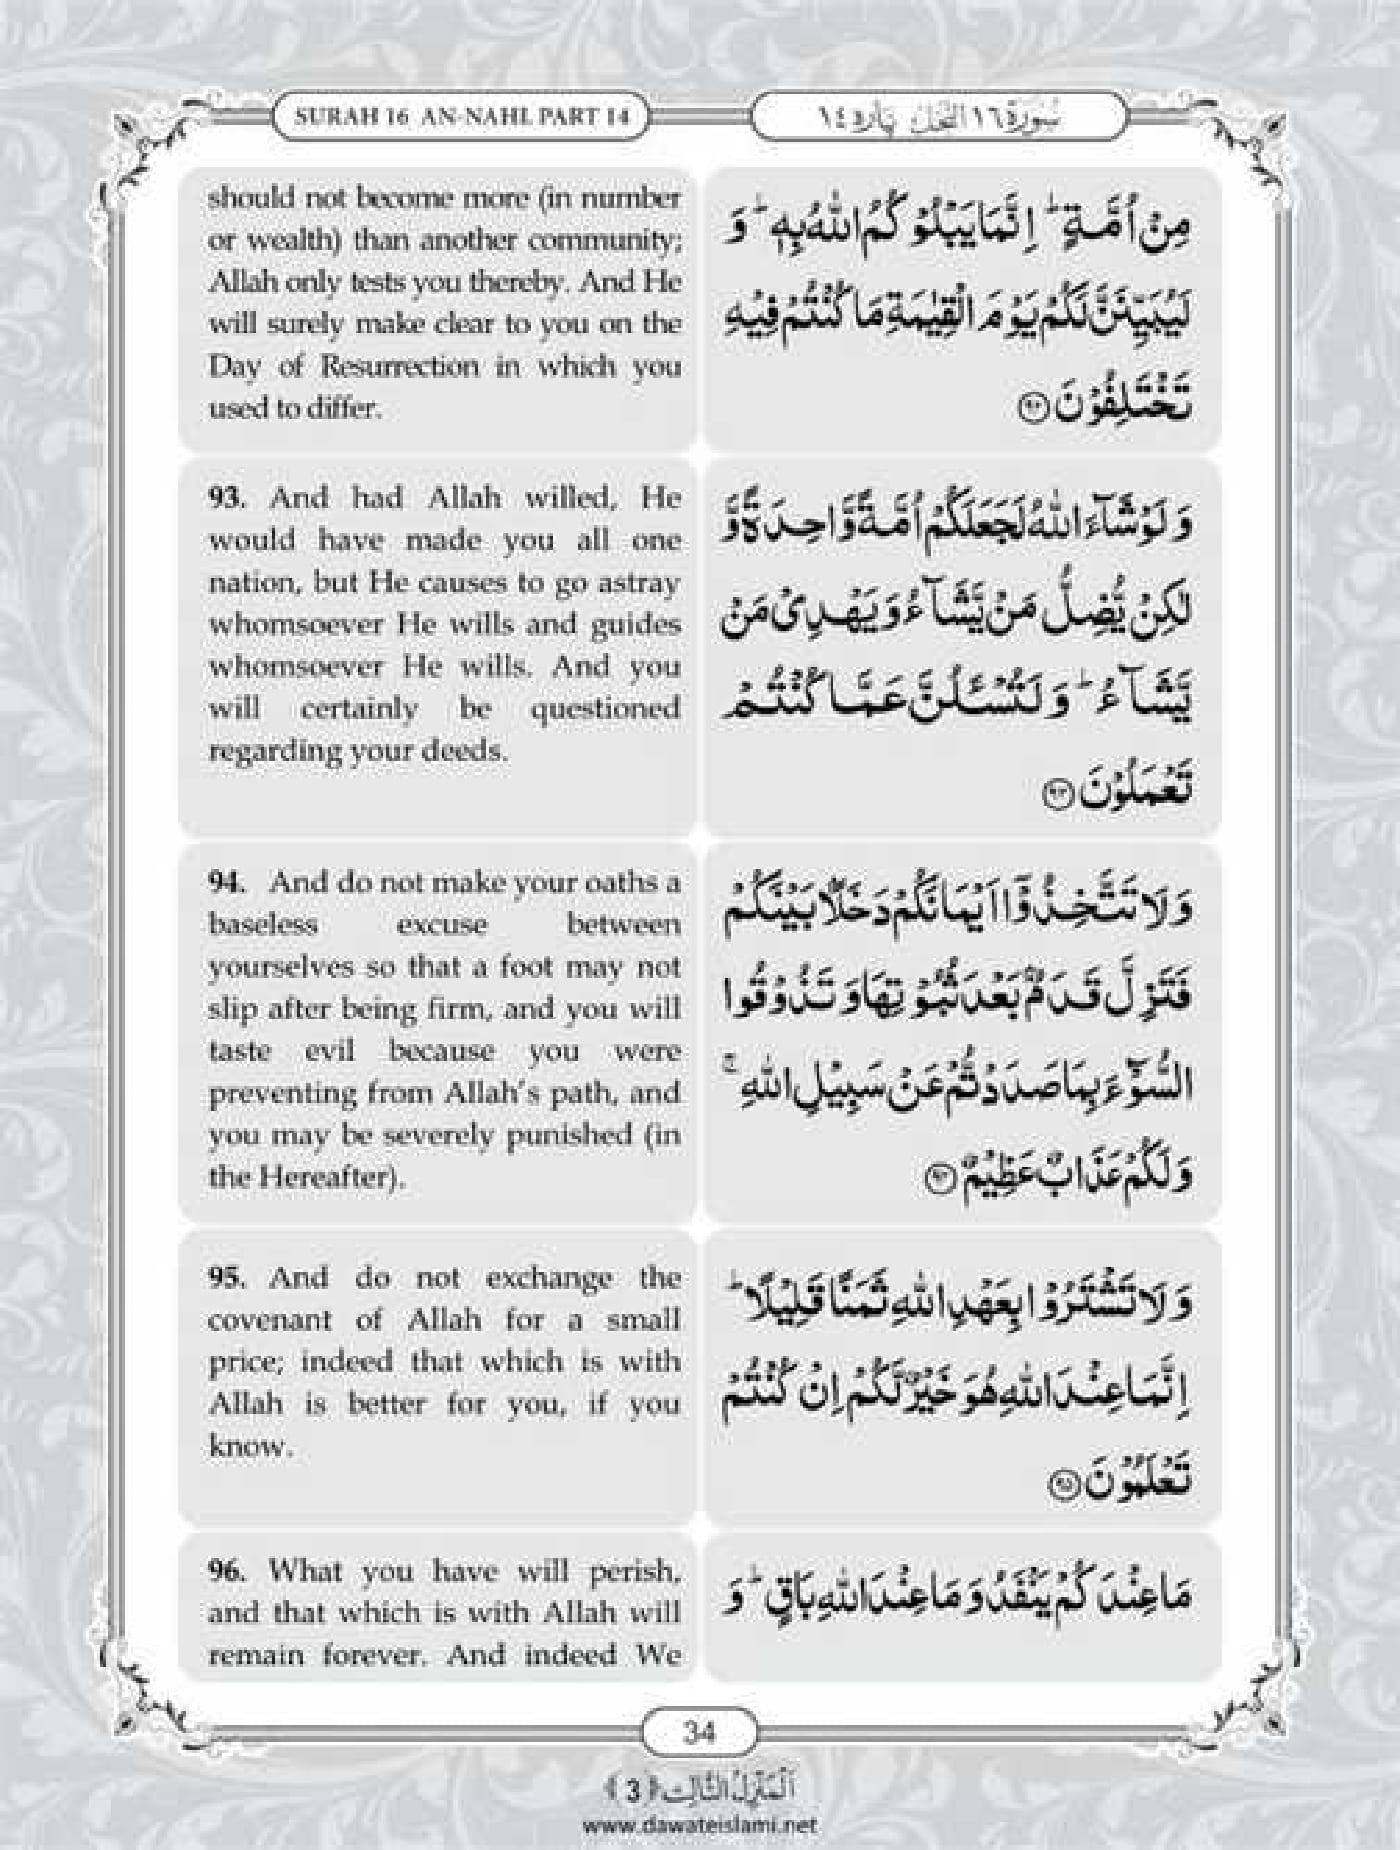 SURAH 16 AN-NAHL PART 14
سُوْرَة ١٦ النَّحْل پاره ١٤
should not become more (in number
or wealth) than another community;
Allah only tests you thereby. And He
will surely make clear to you on the
Day of Resurrection in which you
used to differ.
مِنْ اُمَّةٍ ؕ اِنَّمَا یَبْلُوْكُمُ اللّٰهُ بِهٖ ؕ وَ
لَیُبَیِّنَنَّ لَكُمْ یَوْمَ الْقِیٰمَةِ مَا كُنْتُمْ فِیْهِ
تَخْتَلِفُوْنَ ﴿۹۲﴾
93. And had Allah willed, He
would have made you all one
nation, but He causes to go astray
whomsoever He wills and guides
whomsoever He wills. And you
will certainly be questioned
regarding your deeds.
وَ لَوْ شَآءَ اللّٰهُ لَجَعَلَكُمْ اُمَّةً وَّاحِدَةً وَّ
لٰكِنْ یُّضِلُّ مَنْ یَّشَآءُ وَ یَهْدِیْ مَنْ
یَّشَآءُ ؕ وَ لَتُسْـَٔلُنَّ عَمَّا كُنْتُمْ
تَعْمَلُوْنَ ﴿۹۳﴾
94. And do not make your oaths a
baseless excuse between
yourselves so that a foot may not
slip after being firm, and you will
taste evil because you were
preventing from Allah's path, and
you may be severely punished (in
the Hereafter).
وَ لَا تَتَّخِذُوْۤا اَیْمَانَكُمْ دَخَلًۢا بَیْنَكُمْ
فَتَزِلَّ قَدَمٌۢ بَعْدَ ثُبُوْتِهَا وَ تَذُوْقُوا
السُّوْٓءَ بِمَا صَدَدْتُّمْ عَنْ سَبِیْلِ اللّٰهِ ۚ
وَ لَكُمْ عَذَابٌ عَظِیْمٌ ﴿۹۴﴾
95. And do not exchange the
covenant of Allah for a small
price; indeed that which is with
Allah is better for you, if you
know.
وَ لَا تَشْتَرُوْا بِعَهْدِ اللّٰهِ ثَمَنًا قَلِیْلًا ؕ
اِنَّمَا عِنْدَ اللّٰهِ هُوَ خَیْرٌ لَّكُمْ اِنْ كُنْتُمْ
تَعْلَمُوْنَ ﴿۹۵﴾
96. What you have will perish,
and that which is with Allah will
remain forever. And indeed We
مَا عِنْدَكُمْ یَنْفَدُ وَ مَا عِنْدَ اللّٰهِ بَاقٍ ؕ وَ
34
اَلْمَنْزِلُ الثَّالِث ﴿3﴾
www.dawateislami.net